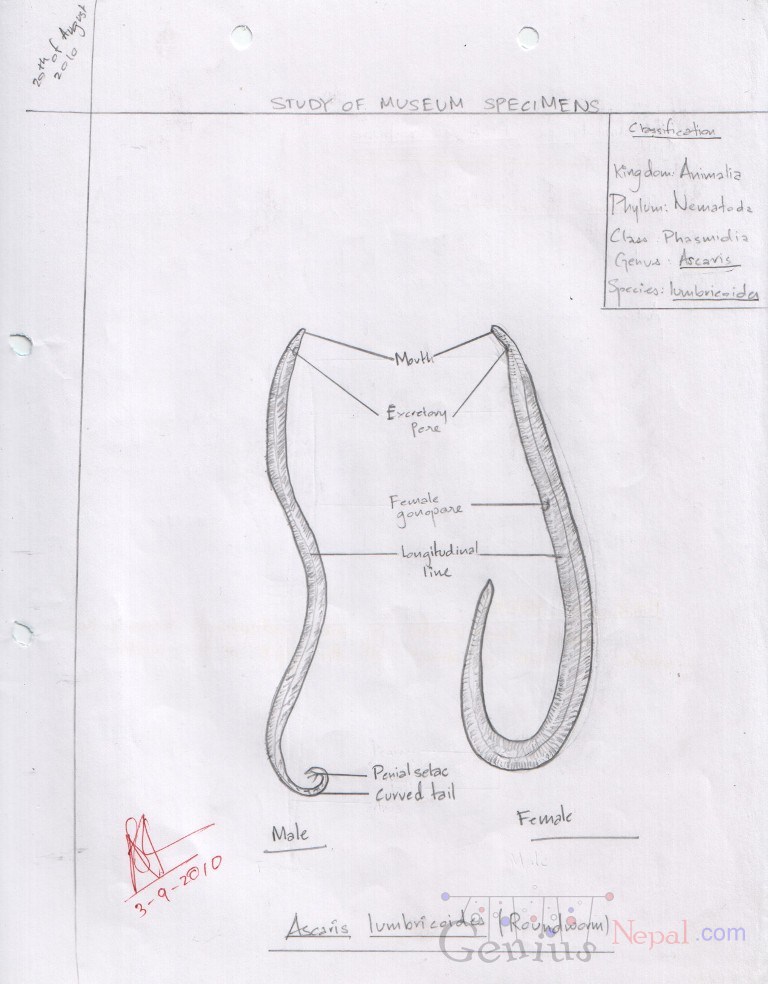 20th
of August
2010
STUDY OF MUSEUM SPECIMENS
Classification
Kingdom: Animalia
Phylum: Nematoda
Class: Phasmidia
Genus: Ascaris
Species: lumbricoides
Mouth
Excretory
Pore
Female
gonopare
Longitudinal
line
Penial setae
Curved tail
Male
Female
3-9-2010
Ascaris lumbricoides (Roundworm)
Genius Nepal.com